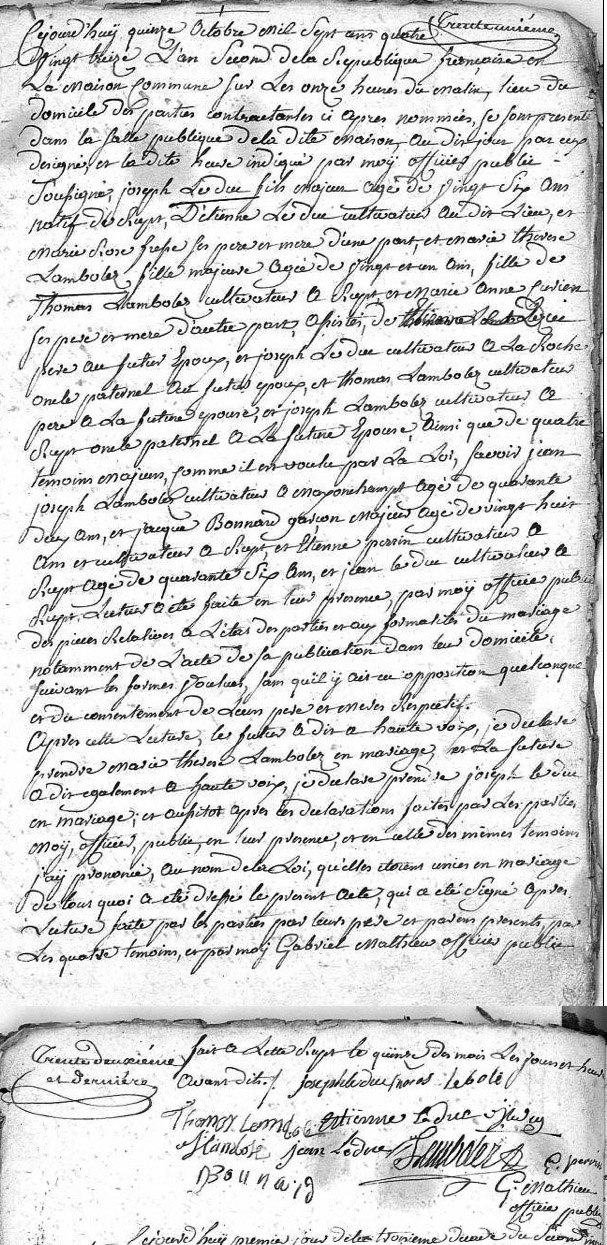 Cejourd'huy quinze Octobre Mil Sept cens quatre
Trente unième
Vingt treize L'an Second de la Republique françoise en
La Maison Commune sur Les onze heures du Matin, lieu du
domicile des parties contractantes ci apres nommées, se sont presenté
dans la salle publique de la dite Maison, au dit jour par eux
designé, et la dite heure indiqué par moÿ officier public
Soussigné, joseph Le duc fils majeur agé de vingt Six ans
natif de Rupt, D'Etienne Le duc cultivateur au dit Lieu, et
Marie Rose ses pere et mere d'une part, et Marie therese
Lambolez fille majeure agée de vingt et un ans, fille de
Thomas Lambolez cultivateur a Rupt, et Marie Anne
ses pere et mere d'autre part, assistés, de
pere au futur Epoux, et joseph Le duc cultivateur a La Roche
oncle paternel au futur epoux, et thomas Lambolez cultivateur
pere a La future epouse, et joseph Lambolez cultivateur a
Rupt oncle paternel a La future Epouse, ainsi que de quatre
temoins majeurs, comme il est voulu par La Loi, savoir jean
joseph Lambolez cultivateur a Maxonchampt agé de quarante
deux ans, et jacque Bonnard garcon majeur agé de vingt huit
ans et cultivateur a Rupt, et Etienne perrin cultivateur a
Rupt agé de quarante Six ans, et jean le duc cultivateur a
Rupt, Lecture a été faite en leur presence, par moÿ officier public
des pieces Relatives a L'état des parties et aux formalités du mariage
notamment de L'acte de sa publication dans leur domicile,
suivant les formes voulues, sans qu'il y ait eu opposition quelconque
et du consentement de Leurs pere et meres Respectif.
Apres cette Lecture, le futur a dit a haute voix, je declare
prendre Marie therese Lambolez en mariage, et La future
a dit egalement a haute voix, je declare prendre joseph le duc
en mariage; et aussitot apres les declarations faites par Les parties
Moÿ, officier, public, en leur presence, et en celle des mêmes temoins
j'aÿ prononcé, au nom de la Loi, qu'elles etoient unies en mariage
de tout quoi a été dressé le present acte, qui a été signé apres
Lecture faite par les parties par leurs pere et parens presents, par
Les quatre temoins, et par moÿ Gabriel Mathieu officier public
Trente deuxième
et derniere
fait a Rupt le quinze des mois Les jour et heure
avant dit. joseph le duc
Etienne leduc
jean Leduc Lambolez
Bounard
G. Mathieu
officier public
Cejourd'huy premier jour de la troisieme decade du Second